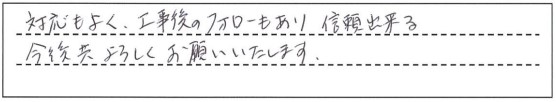 対応もよく、工事後のフォローもあり 信頼出来る
今後共 よろしくお願いいたします.